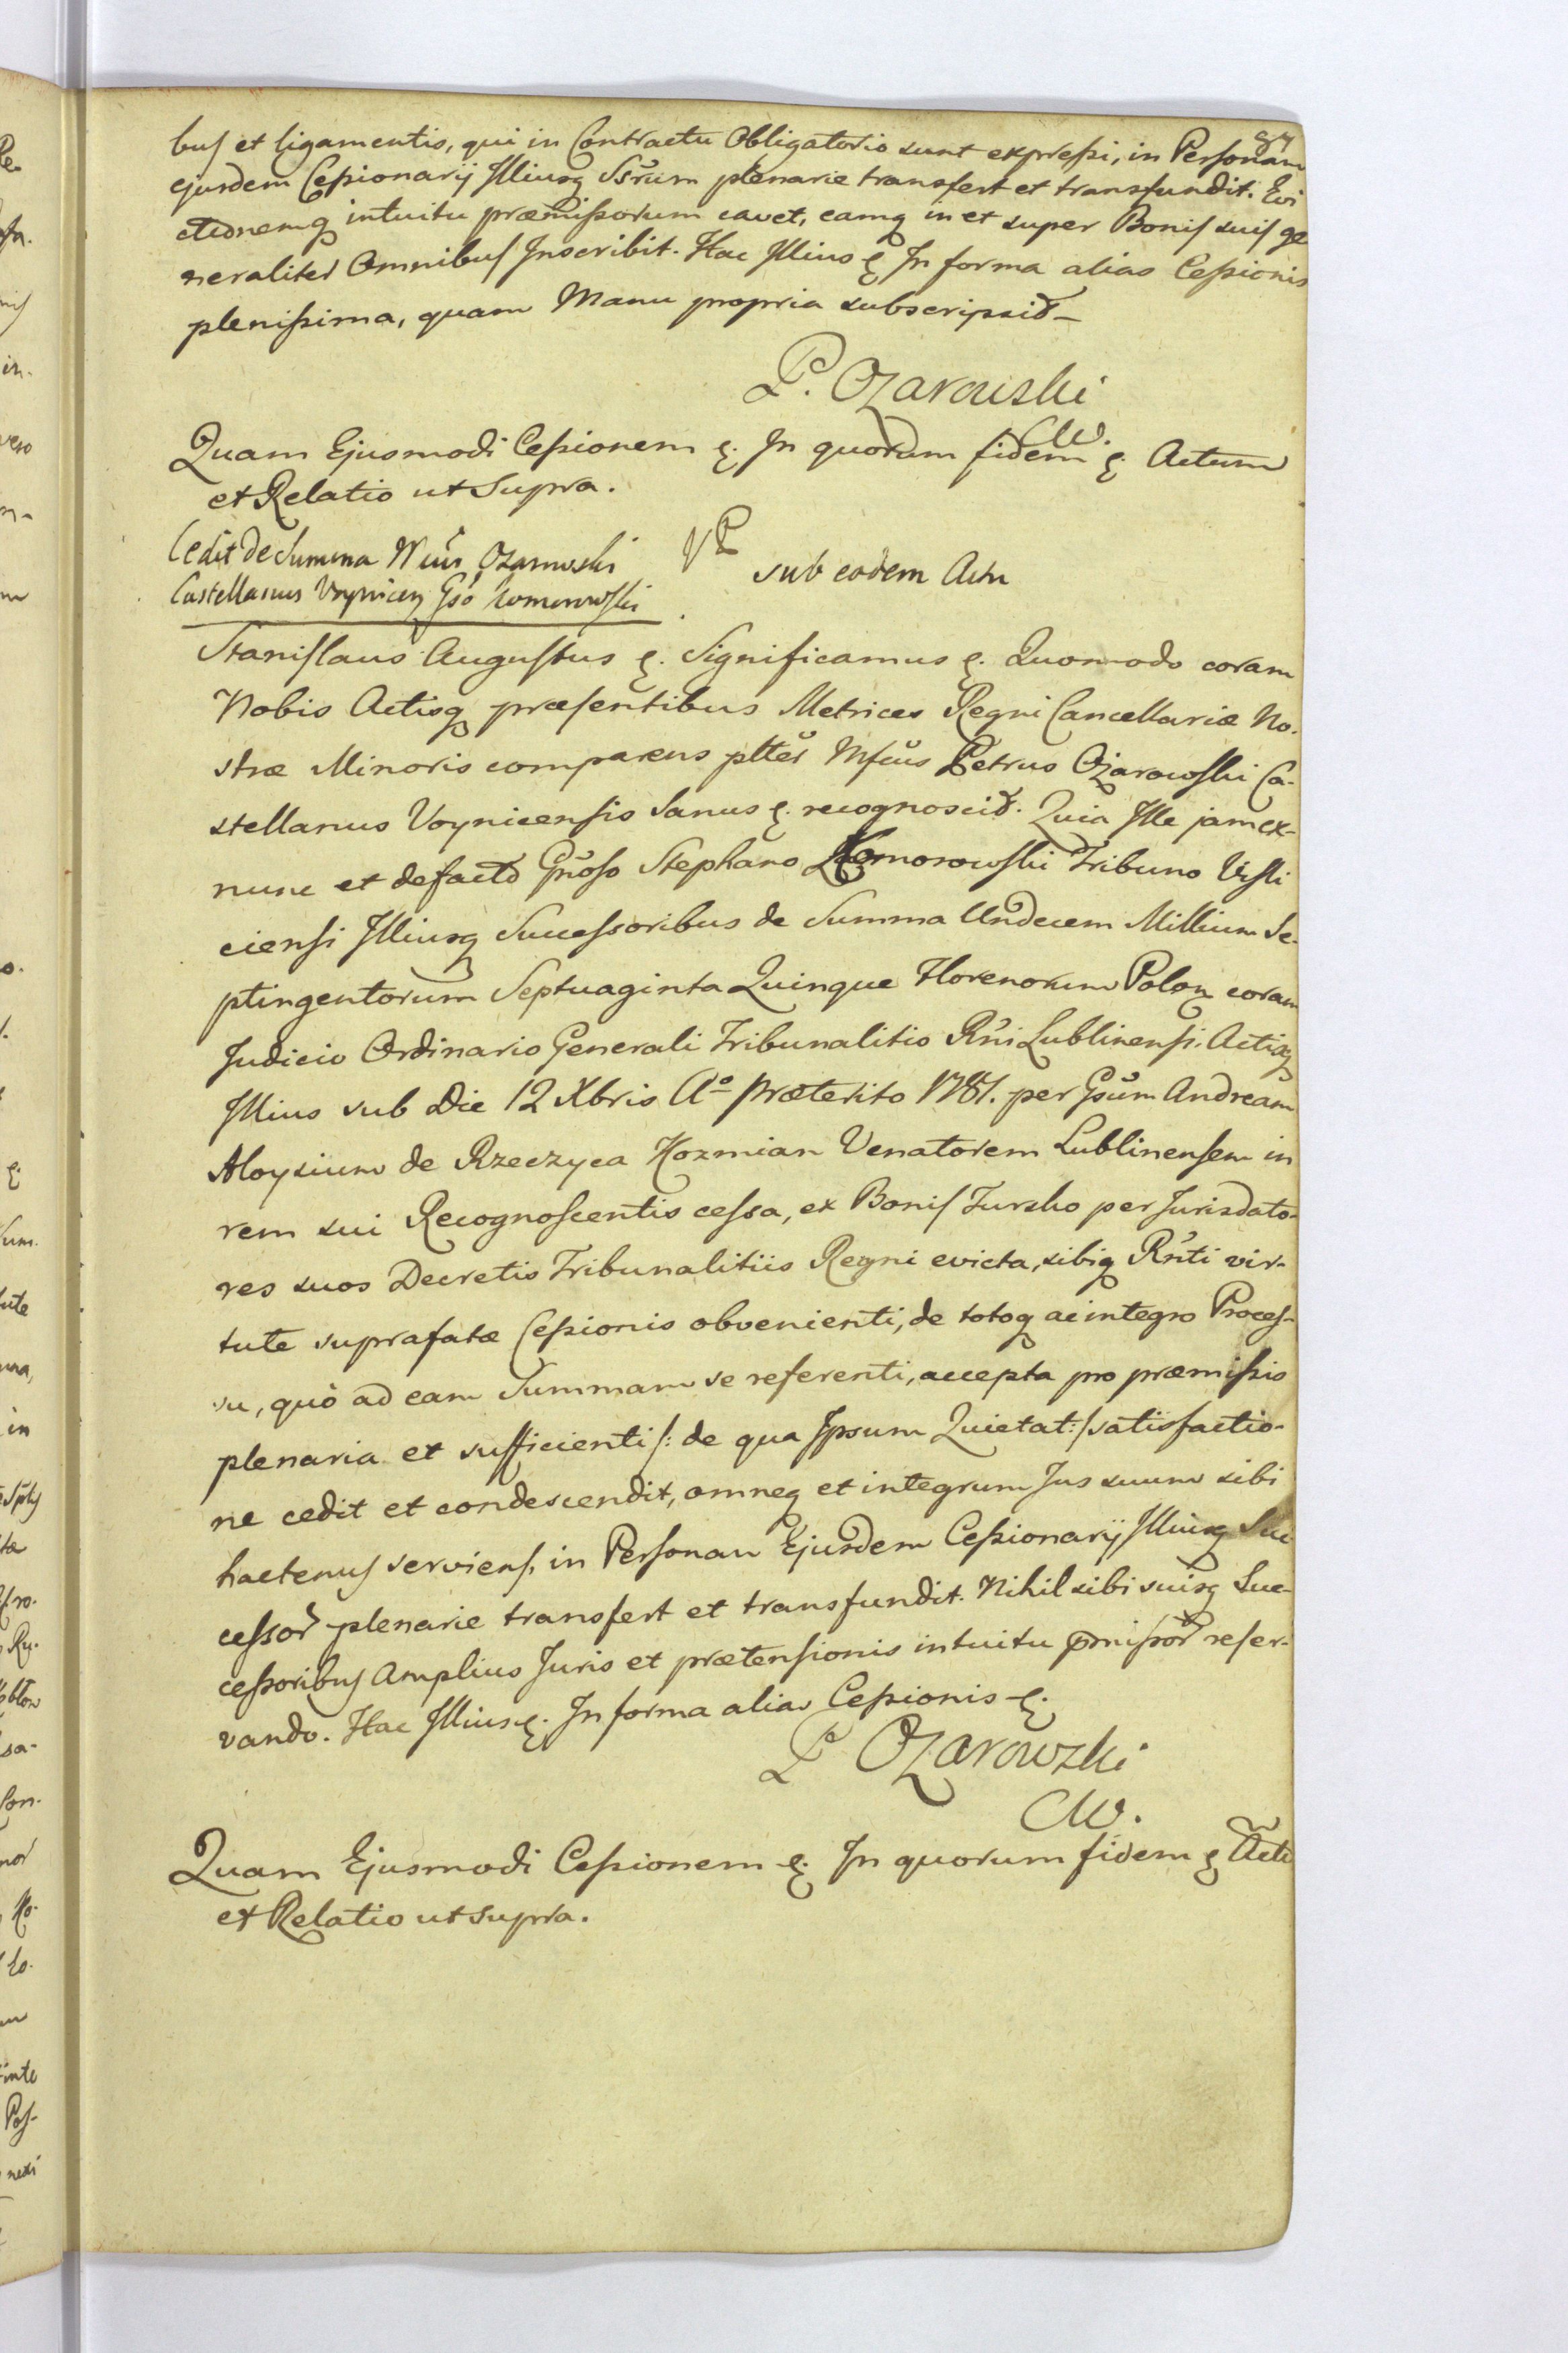 87
bus et ligamentis, qui in Contractu Obligatorio sunt expressi, in Personam
ejusdem Cessionarij Illiusq Ssrum plenarie transfert et transfundit. Evi
ctionemq intuitu præmissorum cavet, eamq in et super Bonis suis ge
neraliter Omnibus Inscribit. Hac Illius &. In forma alias Cessionis
plenissima, quam Manu propria subscripsit –
P. Ożarowski
CW.
Quam Ejusmodi Cessionem &. In quorum fidem &. Actum
et Relatio ut Supra.
Cedit de Summa Mcus Ożarowski
Castellanus Voynicen Gso Komorowski
sub eodem Actu
Stanislaus Augustus &. Significamus &. Quomodo coram
Nobis Actisq præsentibus Metrices Regni Cancellariæ No-
stræ Minoris comparens plter Mfcus Petrus Ożarowski Ca-
stellanus Voynicensis Sanus &. recognoscit. Quia Ille jam ex-
nunc et defacto Gnoso Stephano Komorowski Tribuno Visli
ciensi Illiusq Successoribus de Summa Undecem Millium Se-
ptingentorum Septuaginta Quinque Florenorum Polon coram
Judicio Ordinario Generali Tribunalitio Rni Lublinensi. Actisq
Illius sub Die 12 Xbris Aº præterito 1781. per Gsum Andream
Aloysium de Rzeczyca Kozmian Venatorem Lublinensem in
rem sui Recognoscentis cessa, ex Bonis Tursko per Jurisdato-
res suos Decretis Tribunalitiis Regni evicta, sibiq Rnti vir-
tute suprafatæ Cessionis obvenienti, de totoq ac integro Proces-
su, quò ad eam Summam se referenti, accepta pro præmissis
plenaria et sufficienti /: de qua Ipsum Quietat :/ satisfactio-
ne cedit et condescendit, omneq et integrum Jus suum sibi
hactenus serviens, in Personam Ejusdem Cessionarij Illiusq Suc
cessor plenarie transfert et transfundit. Nihil sibi suisq Suc-
cessoribus Amplius Juris et prætensionis intuitu pmissor reser-
vando. Hac Illius &. In forma alias Cessionis &.
P Ożarowski
CW.
Quam Ejusmodi Cessionem &. In quorum fidem & Actu
et Relatio ut supra.